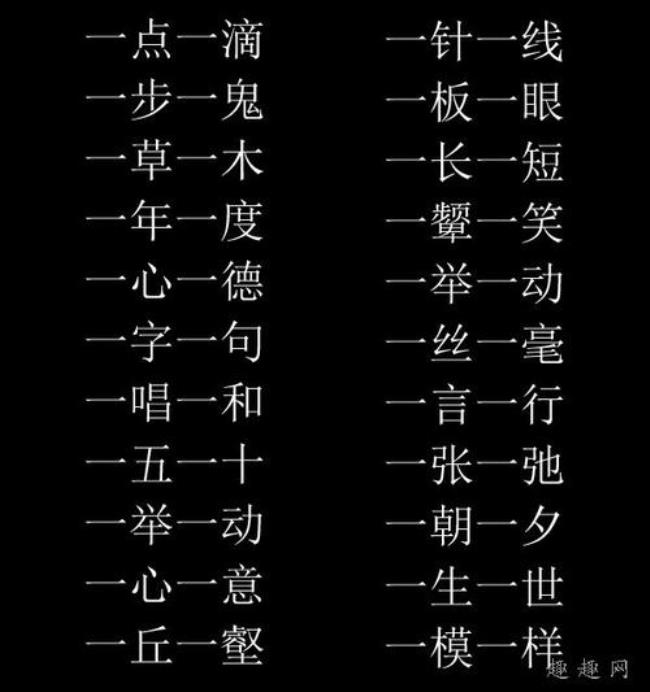 一点一滴
一步一鬼
一草一木
一年一度
一心一德
一字一句
一唱一和
一五一十
一举一动
一心一意
一丘一壑
一针一线
一板一眼
一长一短
一颦一笑
一举一动
一丝一毫
一言一行
一张一弛
一朝一夕
一生一世
一模一样
趣趣网